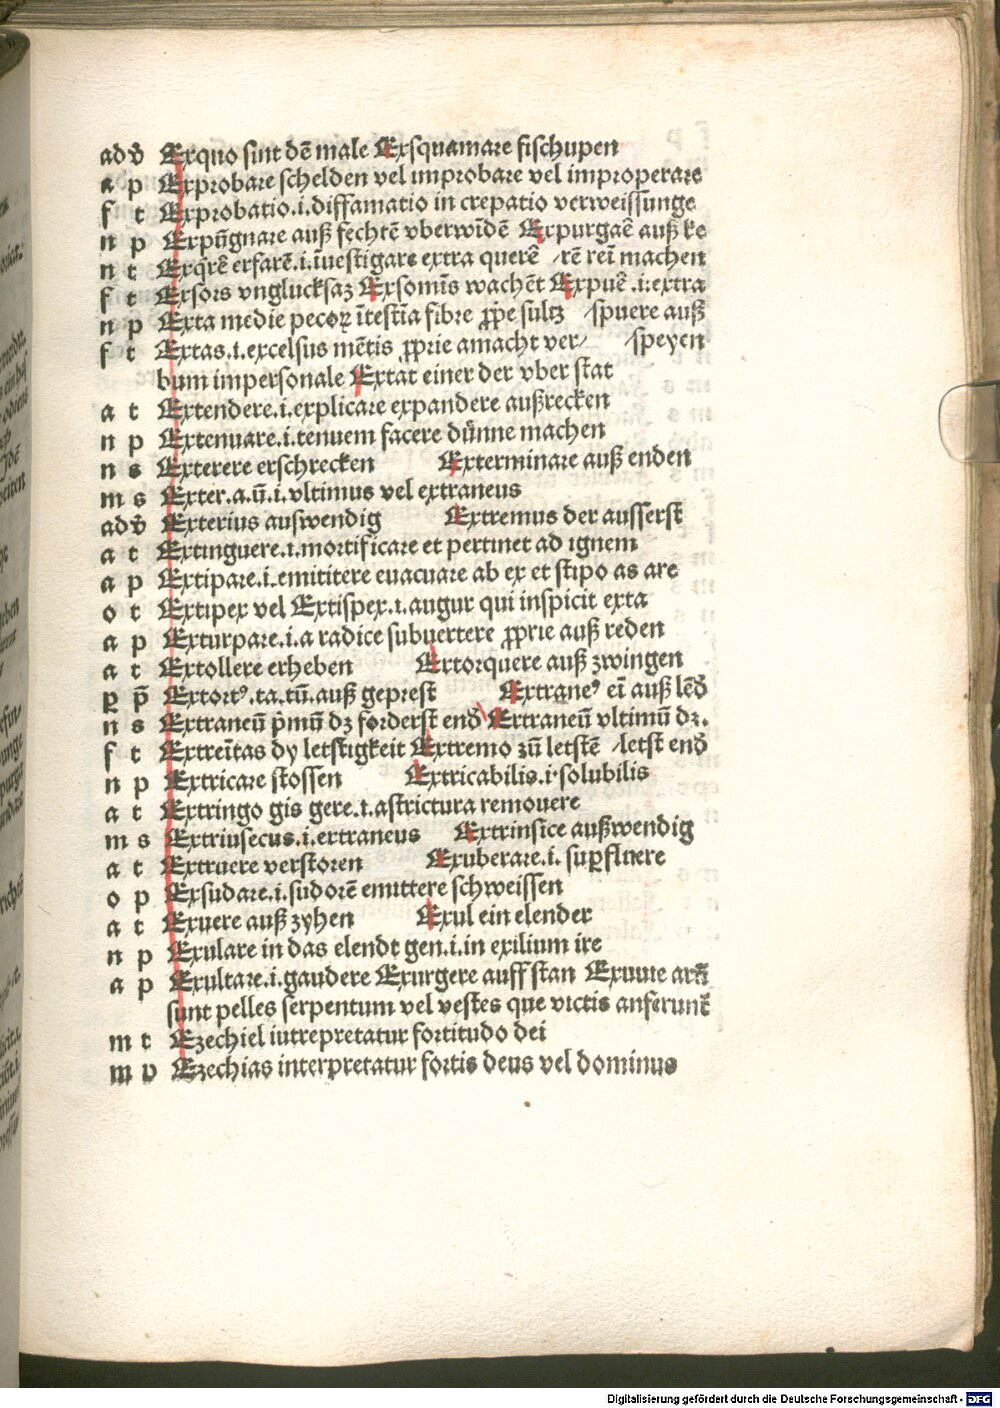 adv̄ Exquo sint dē male Exsquamare fischupen
a p Exprobare schelden vel improbare vel improperare
f t Exprobatio.i.diffamatio in crepatio verweissunge
n p Expūgnare auß fechtē vberwīdē Expurgaē auß ke
n t Exq̄rē erfarē.i.īuestigare extra querē /rē reī machen
f t Exsors vnglucksaz Exsomīs wachēt Expuē .i.extra
n p Exta medie pecoꝝ ītestīa fibre ꝓpe sultz /spuere auß
f t Extas.i.excelsus mētis ꝓprie amacht ver/ /speyen
bum impersonale Extat einer der vber stat
a t Extendere.i.explicare expandere außrecken
n p Extenuare.i.tenuem facere dünne machen
n s Exterere erschrecken Exterminare auß enden
m s Exter.a.ū.i.vltimus vel extraneus
adv̄ Exterius auswendig Extremus der ausserst
a t Extinguere.i.mortificare et pertinet ad ignem
a p Extipare.i.emititere euacuare ab ex et stipo as are
o t Extipex vel Extispex.i.augur qui inspicit exta
a p Exturpare.i.a radice subuertere ꝓprie auß reden
a t Extollere erheben Extorquere auß zwingen
ꝑ p̄ Extortꝰ.ta.tū.auß geprest Extraneꝰ eī auß lēd
n s Extraneū p̄mū dz forderst end Extraneū vltimū dz.
f t Extreītas dy letstigkeit Extremo zū letstē /letst end
n p Extricare stossen Extricabilis.i.solubilis
a t Extringo gis gere.i.astrictura remouere
m s Extriusecus.i.extraneus Extrinsice außwendig
a t Extruere verstoren Exuberare.i. suꝑfluere
o p Exsudare.i.sudorē emittere schweissen
a t Exuere auß zyhen Exul ein elender
n p Exulare in das elendt gen.i.in exilium ire
a p Exultare.i.gaudere Exurgere auff stan Exuuie arū
sunt pelles serpentum vel vestes que victis anferunt
m t Ezechiel iutrepretatur fortitudo dei
m p Ezechias interpretatur fortis deus vel dominus
Digitalisierung gefördert durch die Deutsche Forschungsgemeinschaft - DFG